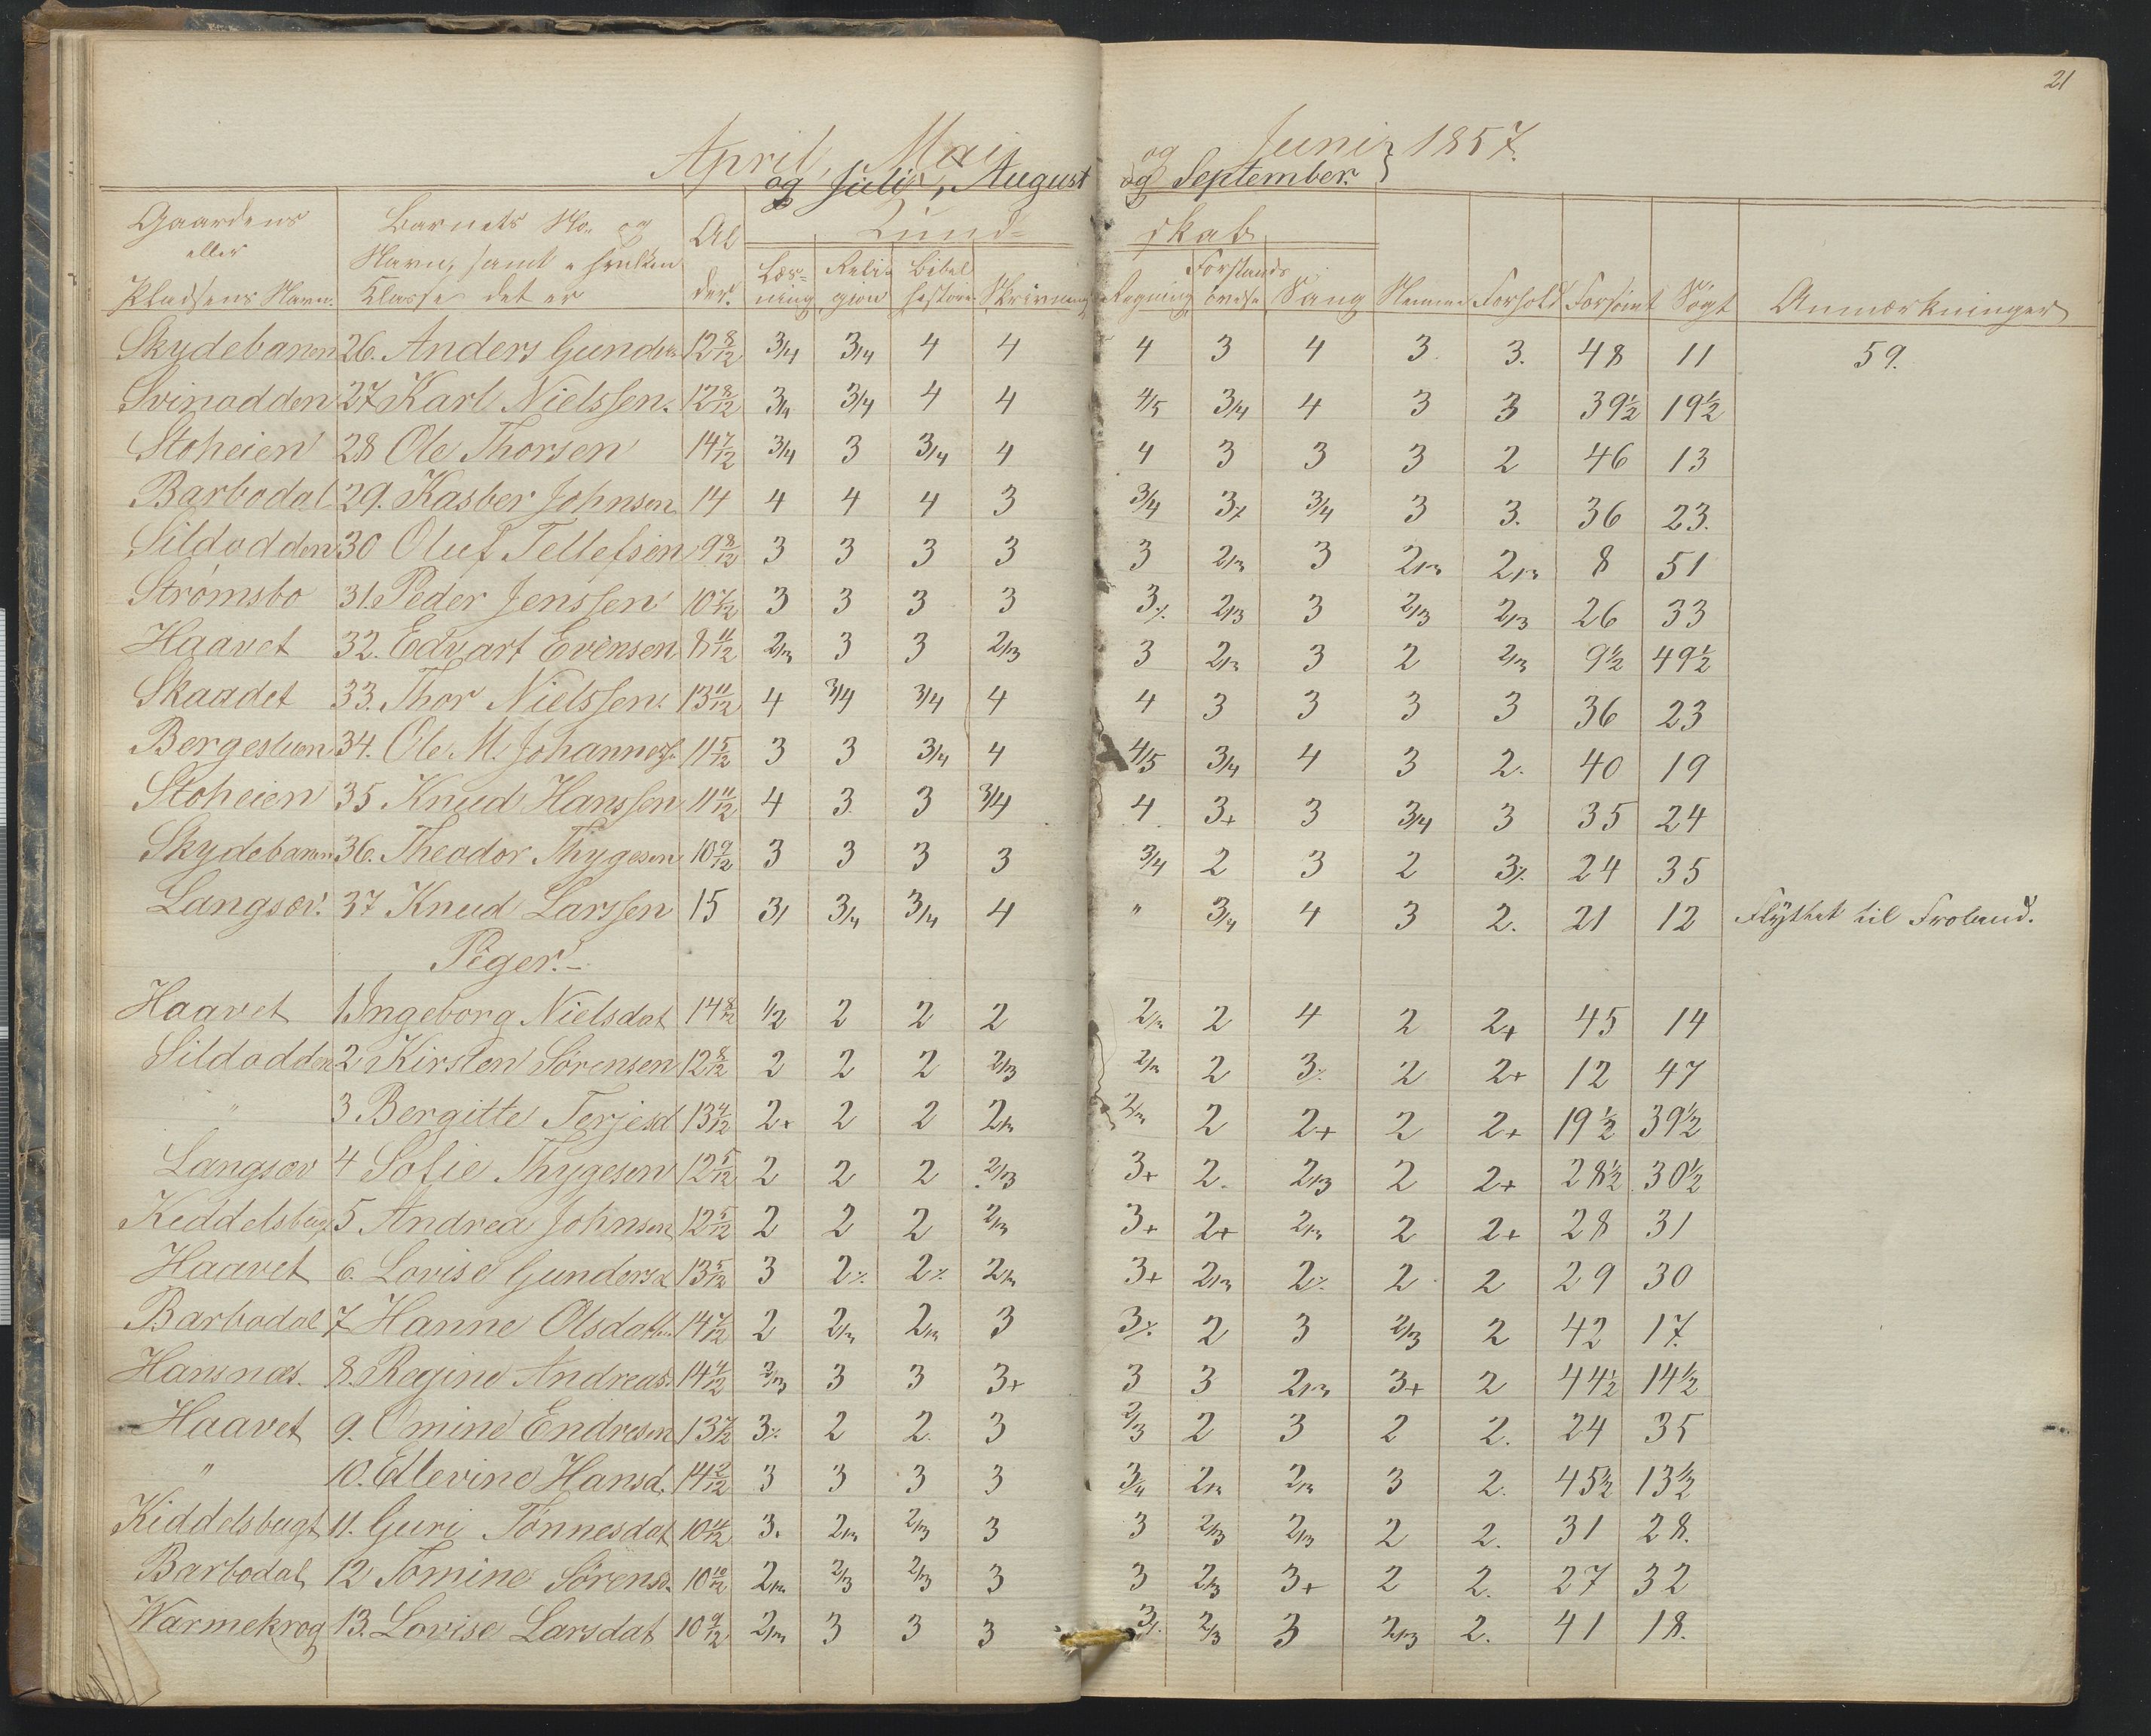 21
April, Mai og Juni } 1857.
og Juli, August og September.
Gaardens eller Pladsens Navn. Barnets No. og Navn, samt i hvilken Klasse det er Alder. Kundskab
Læsning Religion Bibelhistorie Skrivning Regning Forstands Sang Nemme Forhold Forsømt Søgt Anmærkninger
Skydebanen 26. Anders Gunders 12 8/12 3/4 3/4 4 4 4 3 4 3 3. 48 11 59.
Svinodden 27 Karl Nielssen. 12 8/12 3/4 3/4 4 4 4/5 3/4 4 3 3 39½ 19½
Stoheien 28 Ole Thorsen 14 7/12 3/4 3 3/4 4 4 3 3 3 2 46 13
Barbodal 29. Kasber Johnsen 14 4 4 4 3 3/4 3% 3/4 3 3. 36 23.
Sildodden 30 Oluf Tellefsen 9 8/12 3 3 3 3 3 2/3 3 2/3 2/3 8 51
Strømsbo 31. Peder Jenssen 3 3 3 3 3% 2/3 3 2/3 2/3 26 33
Haavet 32. Edvart Evensen 8 11/12 2/3 3 3 2/3 3 2/3 3 2 2/3 9½ 49½
Skaadet 33. Thor Nielssen. 13 11/12 4 3/4 3/4 4 4 3 3 3 3 36 23
34. Ole M. Johannes. 11 5/12 3 3 3/4 4 4/5 3/4 4 3 2. 40 19
Stoheien 35 Knud Hanssen 11 11/12 4 3 3 3/4 4 3+ 3 3/4 3 35 24
Skydebanen 36. Theodor Thygesen 10 9/12 3 3 3 3 3/4 2 3 2 3% 24 35
Langsæv. 37 Knud Larssen 15 3/ 3/4 3/4 4 " 3/4 4 3 2. 21 12 Flyttet til Froland.
Piger.-
Haavet 1. Ingeborg Nielsdat 14 8/12 1/2 2 2 2 2/3 2 4 2 2+ 45 14
Sildodden 2 Kirsten Sørensen 12 8/12 2 2 2 2/3 2/3 2 3% 2 2+ 12 47
" 3. Bergitte Terjesd 13 4/12 2+ 2 2 2/3 2/3 2 2+ 2 2+ 19½ 39½
Langsæv 4 Sofie Thygesen 12 5/12 2 2 2 2/3 3+ 2. 2/3 2 2+ 28½ 30½
Kiddelsbugt 5 Andrea Johnsen 12 5/12 2 2 2 2/3 3+ 2+ 2/3 2 2+ 28 31
Haavet 6. Lovise Gundersd 13 5/12 3 2% 2% 2/3 3+ 2/3 2% 2 2 29 30
Barbodal 7 Hanne Olsdatter 14 7/12 2 2/3 2/3 3 3% 2 3 2/3 2 42 17.
Hansnæs. 8. Regine Andreas. 2/3 3 3 3+ 3 3 2/3 3+ 2 44½ 14½
Haavet 9. Omine Endresen 13 7/12 3% 2 2. 3 2/3 2 3 2 2. 24 35
" 10. Edlevine Hansd. 14 2/12 3 3 3 3 3/4 2/3 2/3 3 2. 45½ 13½
Kiddelsbugt 11. Guri Tønnesdat 3. 2/3 2/3 3 3 2/3 2/3 2 2. 31 28.
Barbodal 12 Tomine Sørensd. 10 10/12 2/3 2/3 2/3 3 3 2/3 3+ 2 2. 27 32
Warmekrog 13. Lovise Larsdat 10 9/12 2/3 3 3 3 3/. 2/3 3 2/3 2. 41 18.